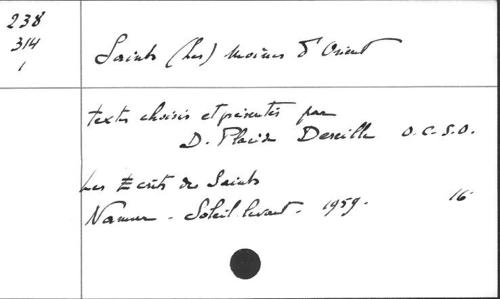 238
314
1
Saints (Les) moines d'Orient
textes choisis et présentés par
D. Placide Deseille O.C.S.O.
Les Ecrits des Saints
Namur - Soleil levant - 1959. 16°